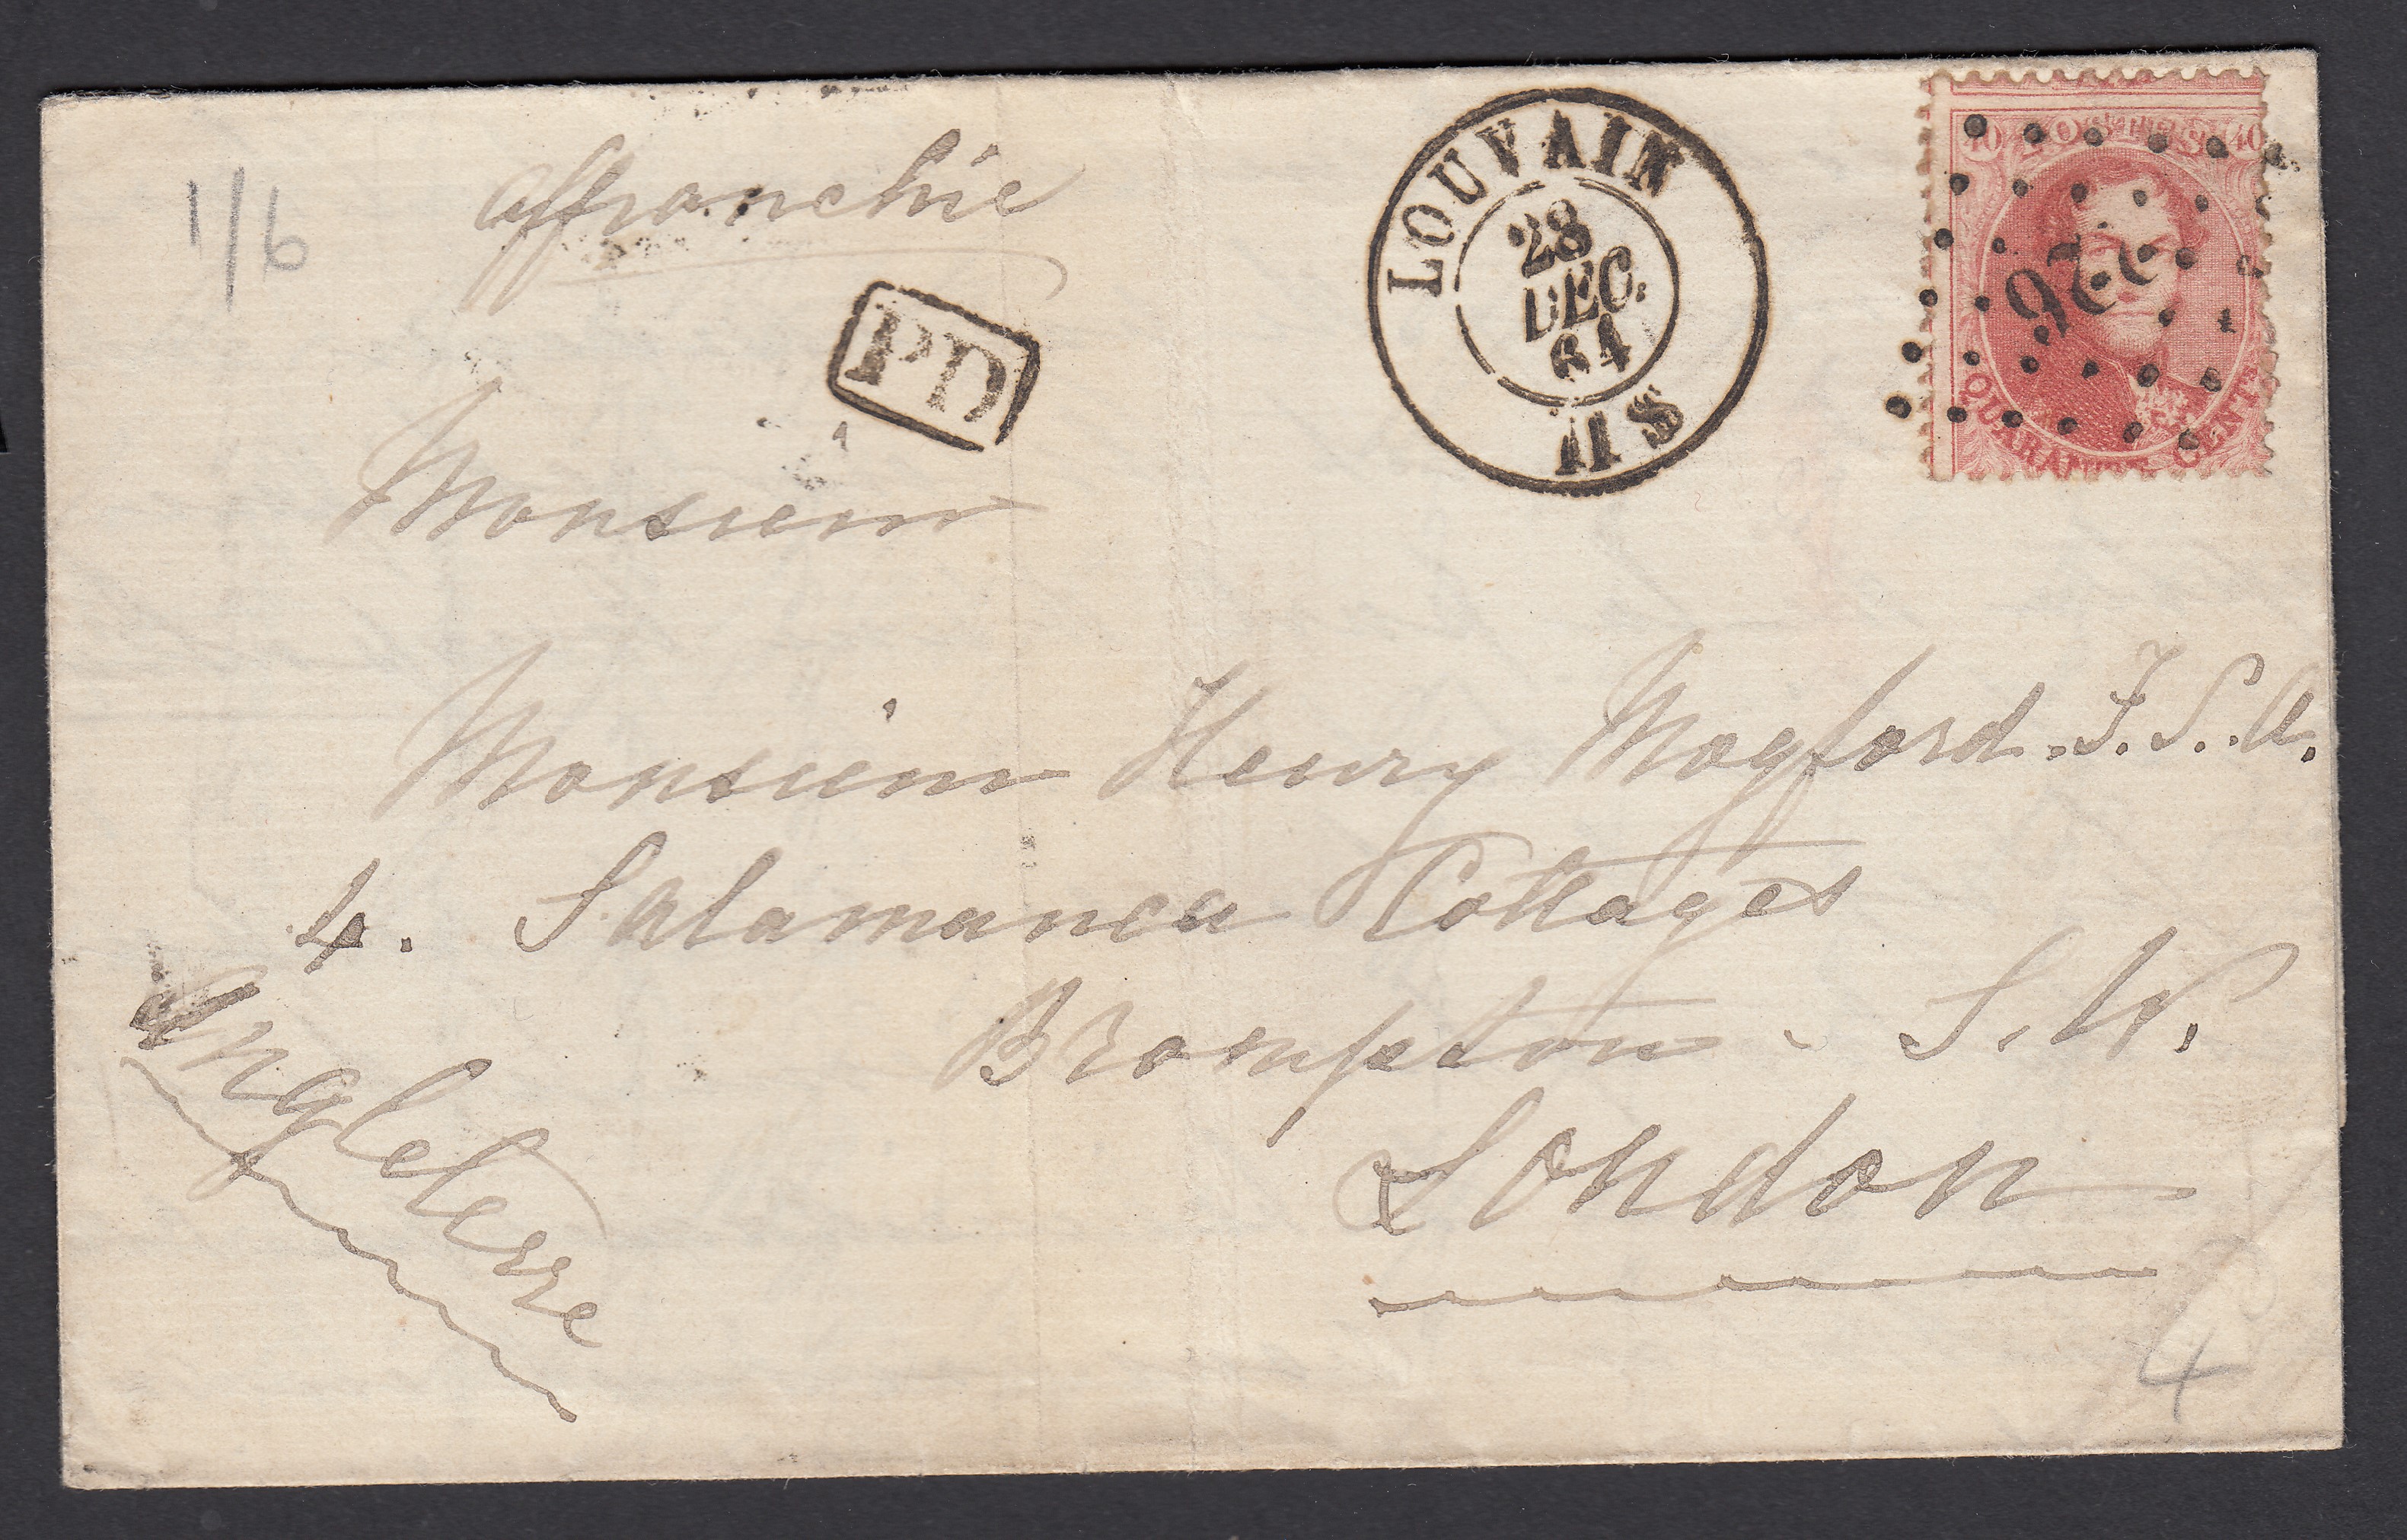 1/6
affranchie
PD
LOUVAIN
28
DEC.
64
11 S
40 POSTES 40
226
QUARANTE CENTS
Monsieur
Monsieur Henry Mogford. F.S.A.
4. Salamanca Cottages
Brompton - S.W.
London
Angleterre
4